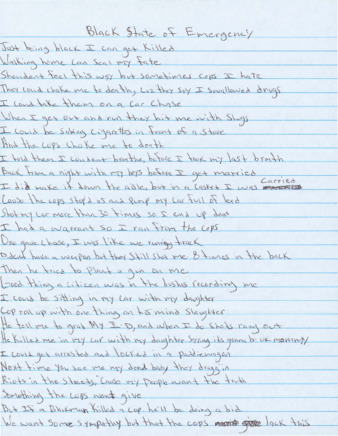 Black State of Emergency
Just being black I can get killed
Walking home can seal my fate
Shouldent feel this way but sometimes cops I hate
They could choke me to death, cuz they say I swallowed drugs
I could take them on a car chase
When I get out and run they hit me with slugs
I could be selling cigarettes in front of a store
And the cops choke me to death
I told them I couldent breathe, before I took my last breath
Back from a night with my boys before I get married
I did make it down the aisle, but in a casket I was carried
Cause the cops stop'd us and pump my car full of lead
Shot my car more than 30 times so I end up dead
I had a warrant so I ran from the cops
One gave chase, I was like we running track
Dident have a weapon but they still shot me 8 times in the back
Then he tried to plant a gun on me
Good thing a citizen was in the bushes recording me
I could be sitting in my car with my daughter
Cop roll up with one thing on his mind slaughter
He tell me to grab my I-D, and when I do shots rang out
He killed me in my car with my daughter saying its gonna b ok mommy
I could get arrested and locked in a paddiewagon
Next time you see me my dead body they draggin
Riots in the streets, cause my people want the truth
Something the cops wont give
But If a blackman killed a cop he'll be doing a bid
We want some sympathy but that the cops lack this